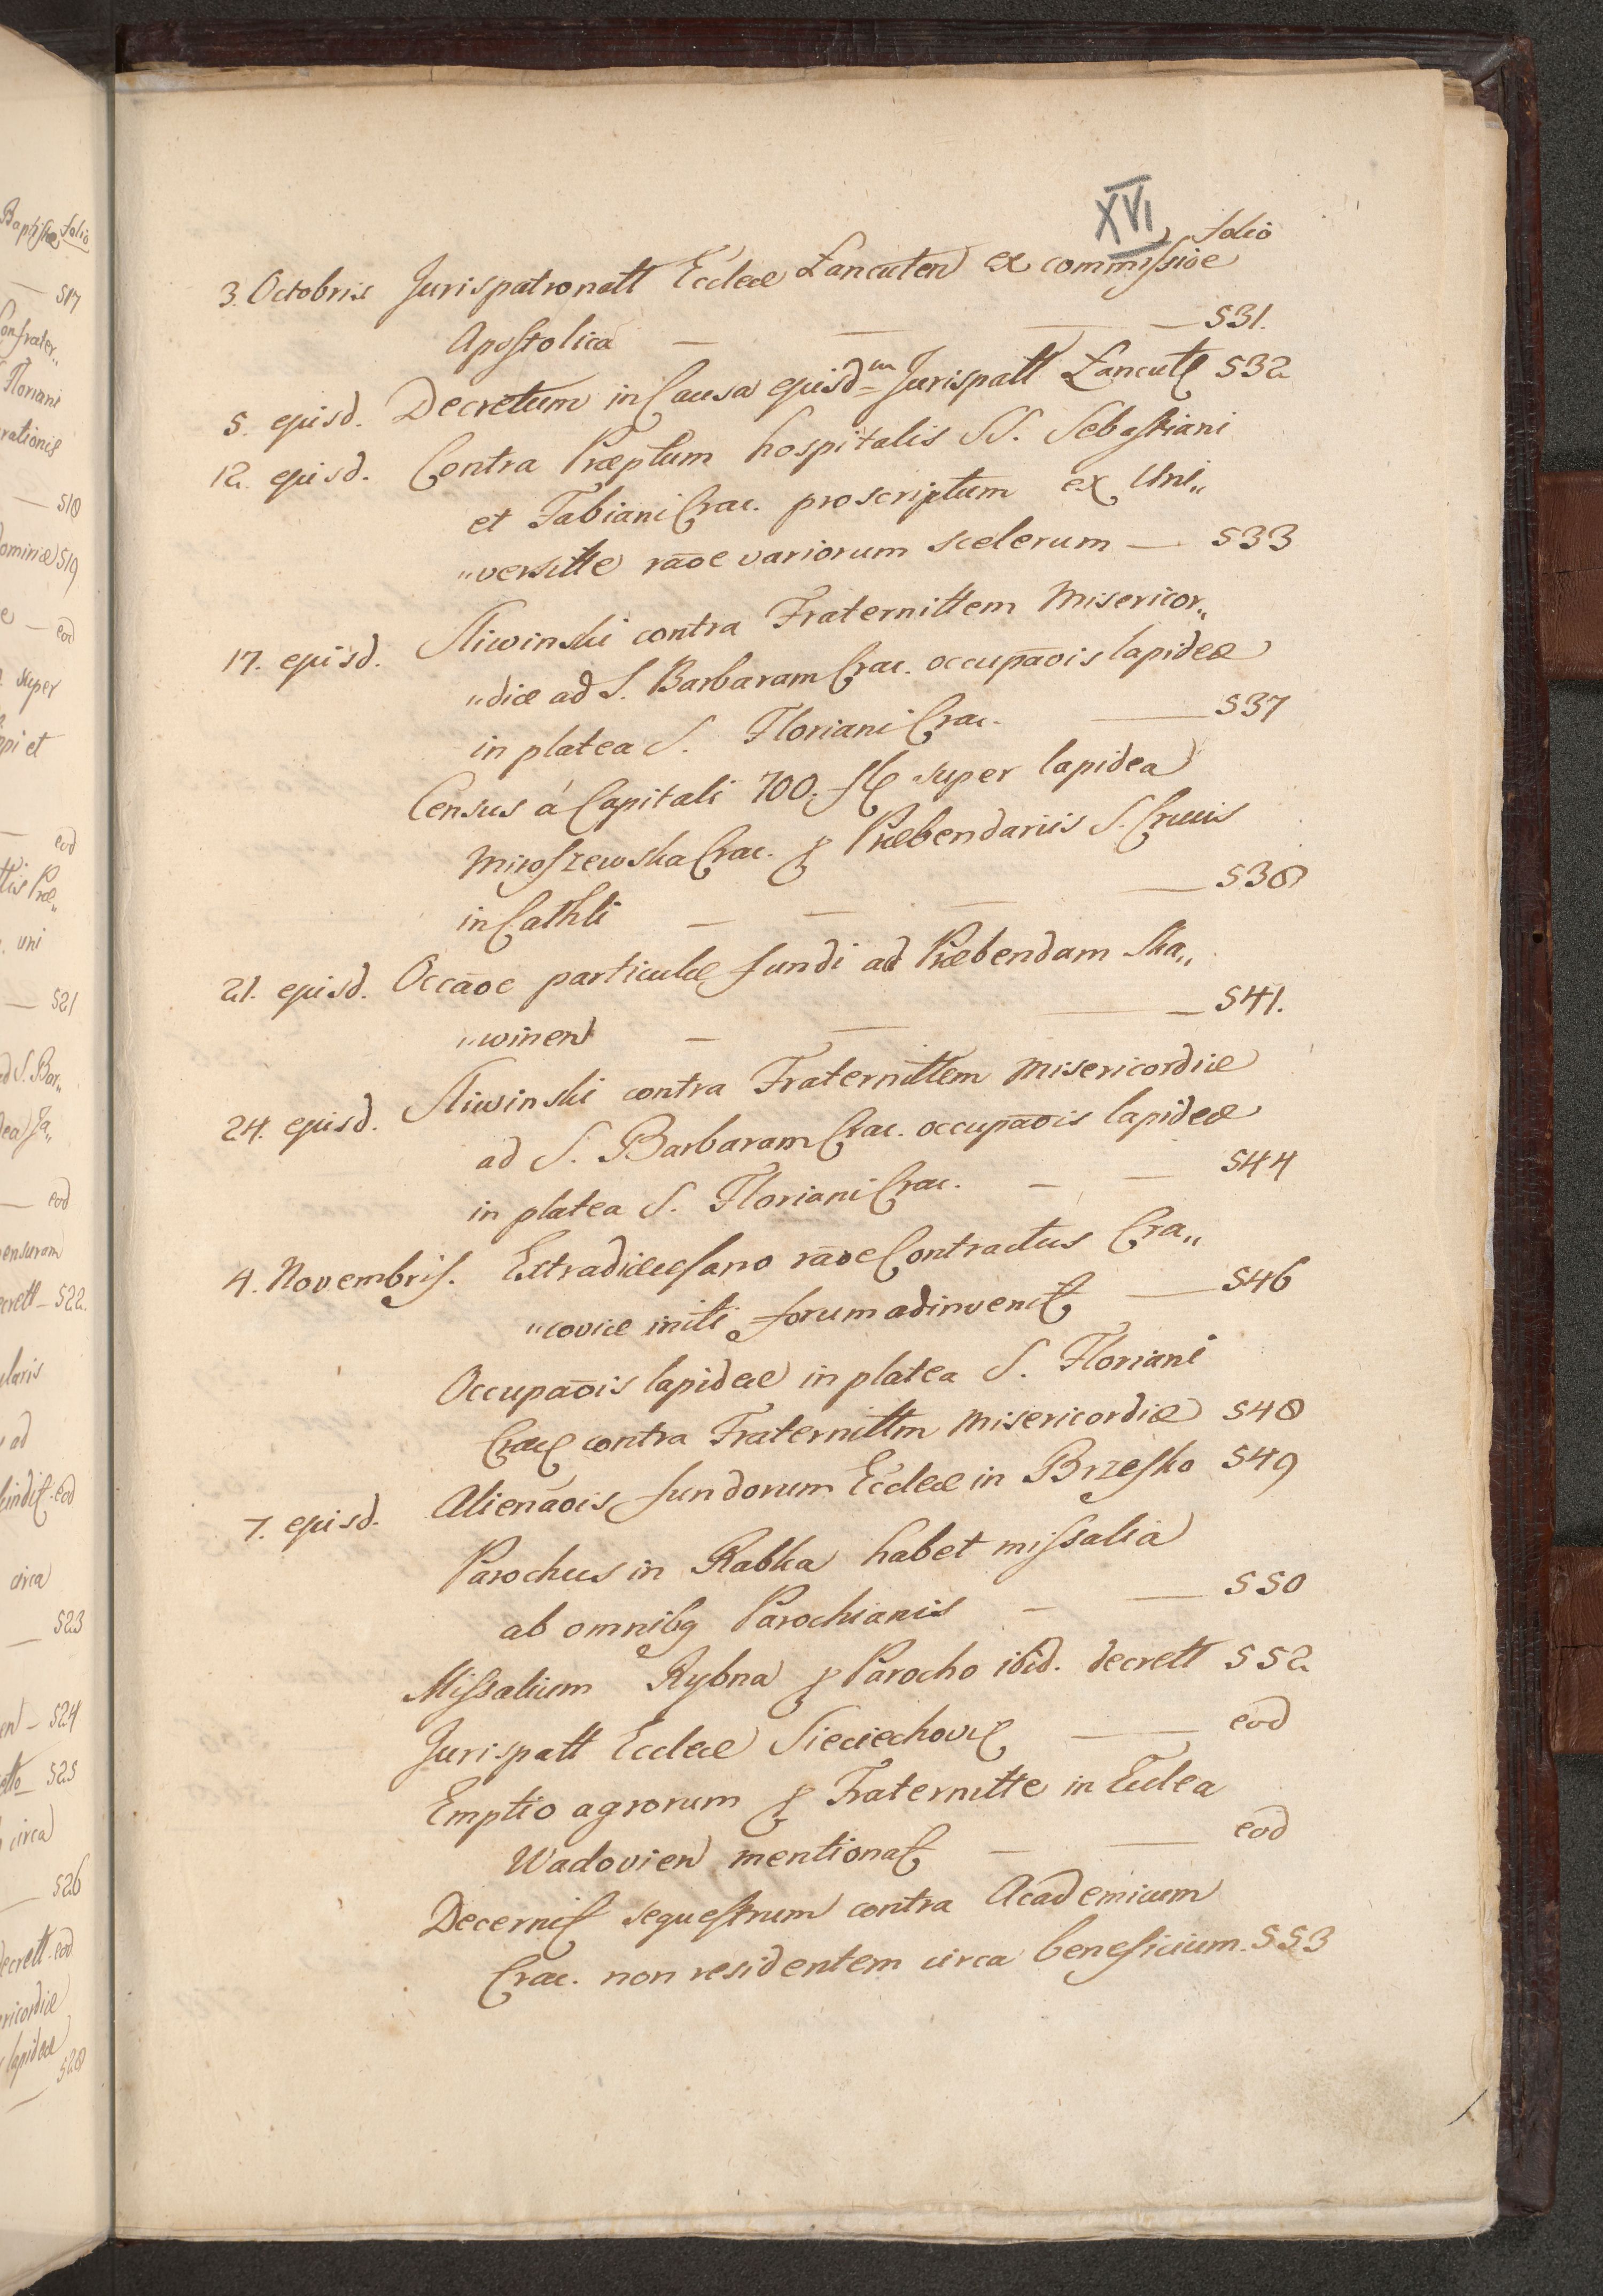 XVI
folio
3. Octobris Jurispatronatt Eccleæ Łancuten ex commissioe
Apostolica — — — 531.
5. ejusd. Decretum in Causa ejusdm Jurispatt Łancut 532
12. ejusd. Contra Præptum hospitalis SS. Sebastiani
et Fabiani Crac. proscriptum ex Uni„
„versitte rāōe variorum scelerum — 533
17. ejusd. Sliwinski contra Fraternittem Misericor„
„diæ ad S. Barbaram Crac. occupāōis lapideæ
in platea S. Floriani Crac. — 537
Census á Capitali 700. fl super lapidea
Miroszewska Crac. p Præbendariis S. Crucis
in Cathli — — — — 538
21. ejusd. Occāōe particulæ fundi ad Præbendam Ska„
„winen — — — 541.
24. ejusd. Sliwinski contra Fraternittem Misericordiæ
ad S. Barbaram Crac. occupāōis lapideæ
in platea S. Floriani Crac. — — 544
4. Novembris. Extradiæcesano rāōe Contractus Cra„
„coviæ initi forum adinvenit — 546
Occupāōis lapideæ in platea S. Floriani
Crac contra Fraternittm Misericordiæ 548
7. ejusd. Alienāōis fundorum Eccleæ in Brzesko 549
Parochus in Rabka habet missalia
ab omnibq Parochianis — — 550
Missalium Rybna p Parocho ibid. decrett 552
Jurispatt Eccleæ Sieciechovi — eod
Emptio agrorum p Fraternitte in Ecclea
Wadovien mentionat — — eod
Decernit sequestrum contra Academicum
Crac. non residentem circa beneficium. 553
Baptistæ folio
— 517
Confrater„
Floriani
rationis
— 518
ominæ 519
— eod
super
pi et
— eod
uni
— 521
ad S. Bar„
— eod
ensuram
ecrett — 522.
ularis
ad
eod
circa
— 523
en — 524
— 525
circa
— 526
decrett. eod
ericordiæ
lapideæ
— 528